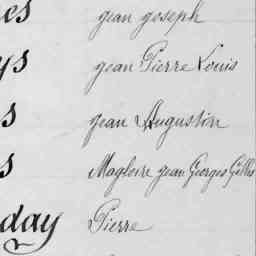 es jean joseph
ys jean Pierre Louis
s jean Augustin
s Magloire jean Georges Gilles
day Pierre